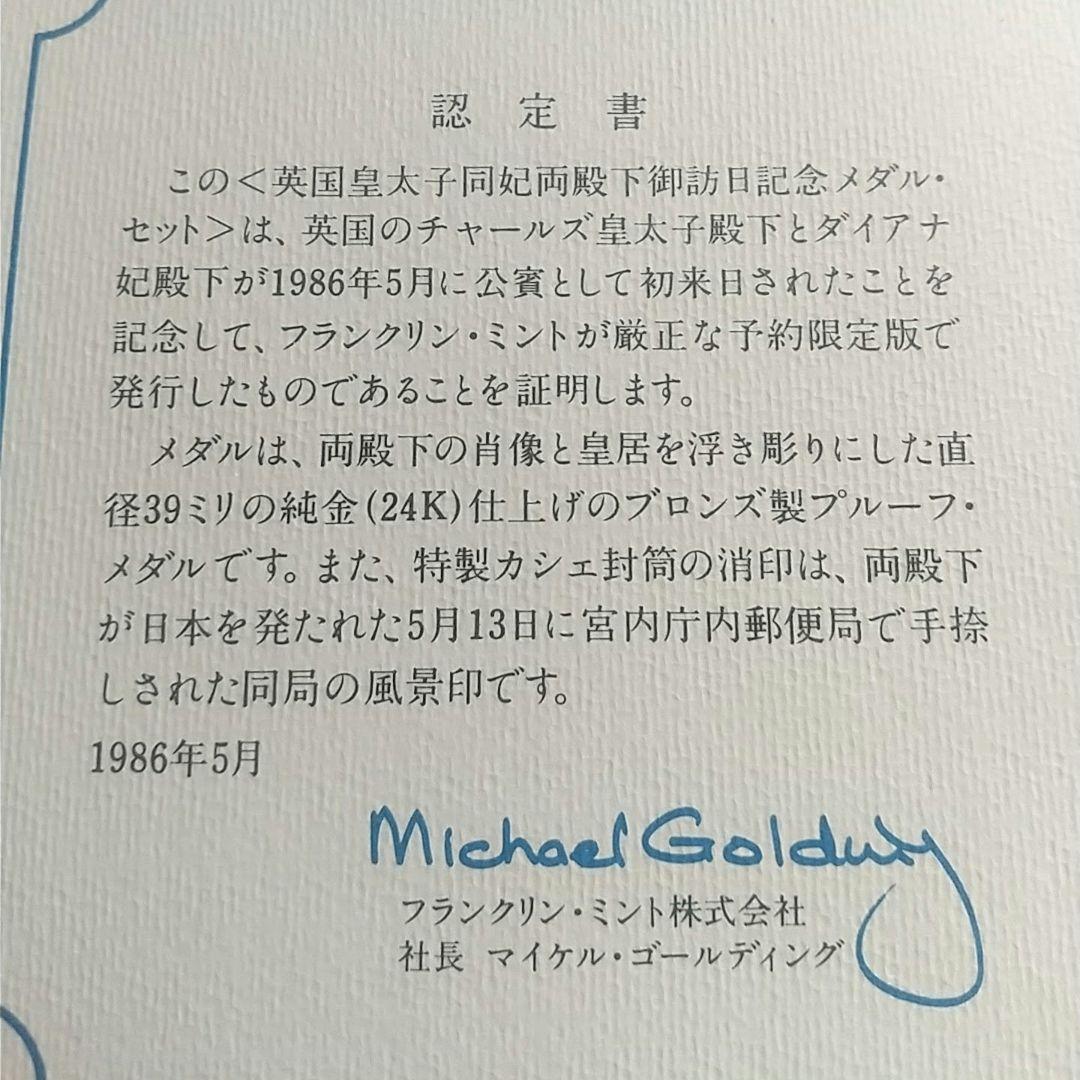 認定書
この＜英国皇太子同妃両殿下御訪日記念メダル・
セット＞は、英国のチャールズ皇太子殿下とダイアナ
妃殿下が1986年5月に公賓として初来日されたことを
記念して、フランクリン・ミントが厳正な予約限定版で
発行したものであることを証明します。
メダルは、両殿下の肖像と皇居を浮き彫りにした直
径39ミリの純金(24K)仕上げのブロンズ製プルーフ・
メダルです。また、特製カシェ封筒の消印は、両殿下
が日本を発たれた5月13日に宮内庁内郵便局で手捺
しされた同局の風景印です。
1986年5月
Michael Golding
フランクリン・ミント株式会社
社長 マイケル・ゴールディング